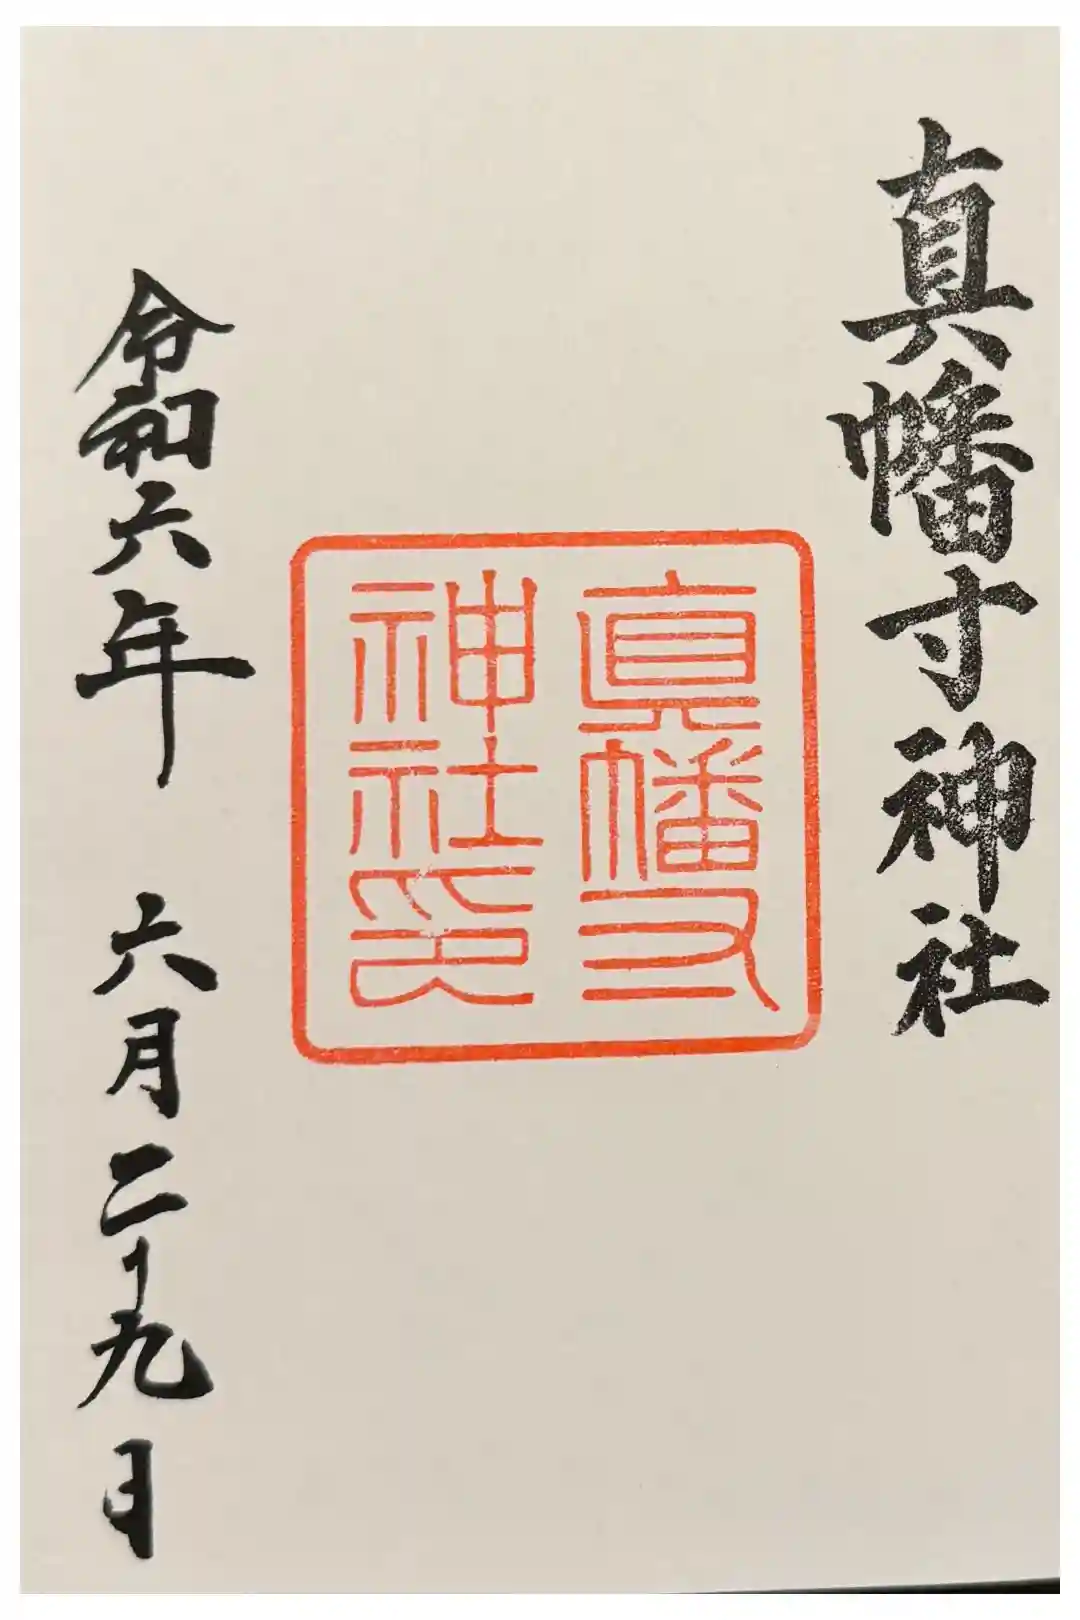 真幡寸神社
真幡寸
神社印
令和六年 六月二十九日